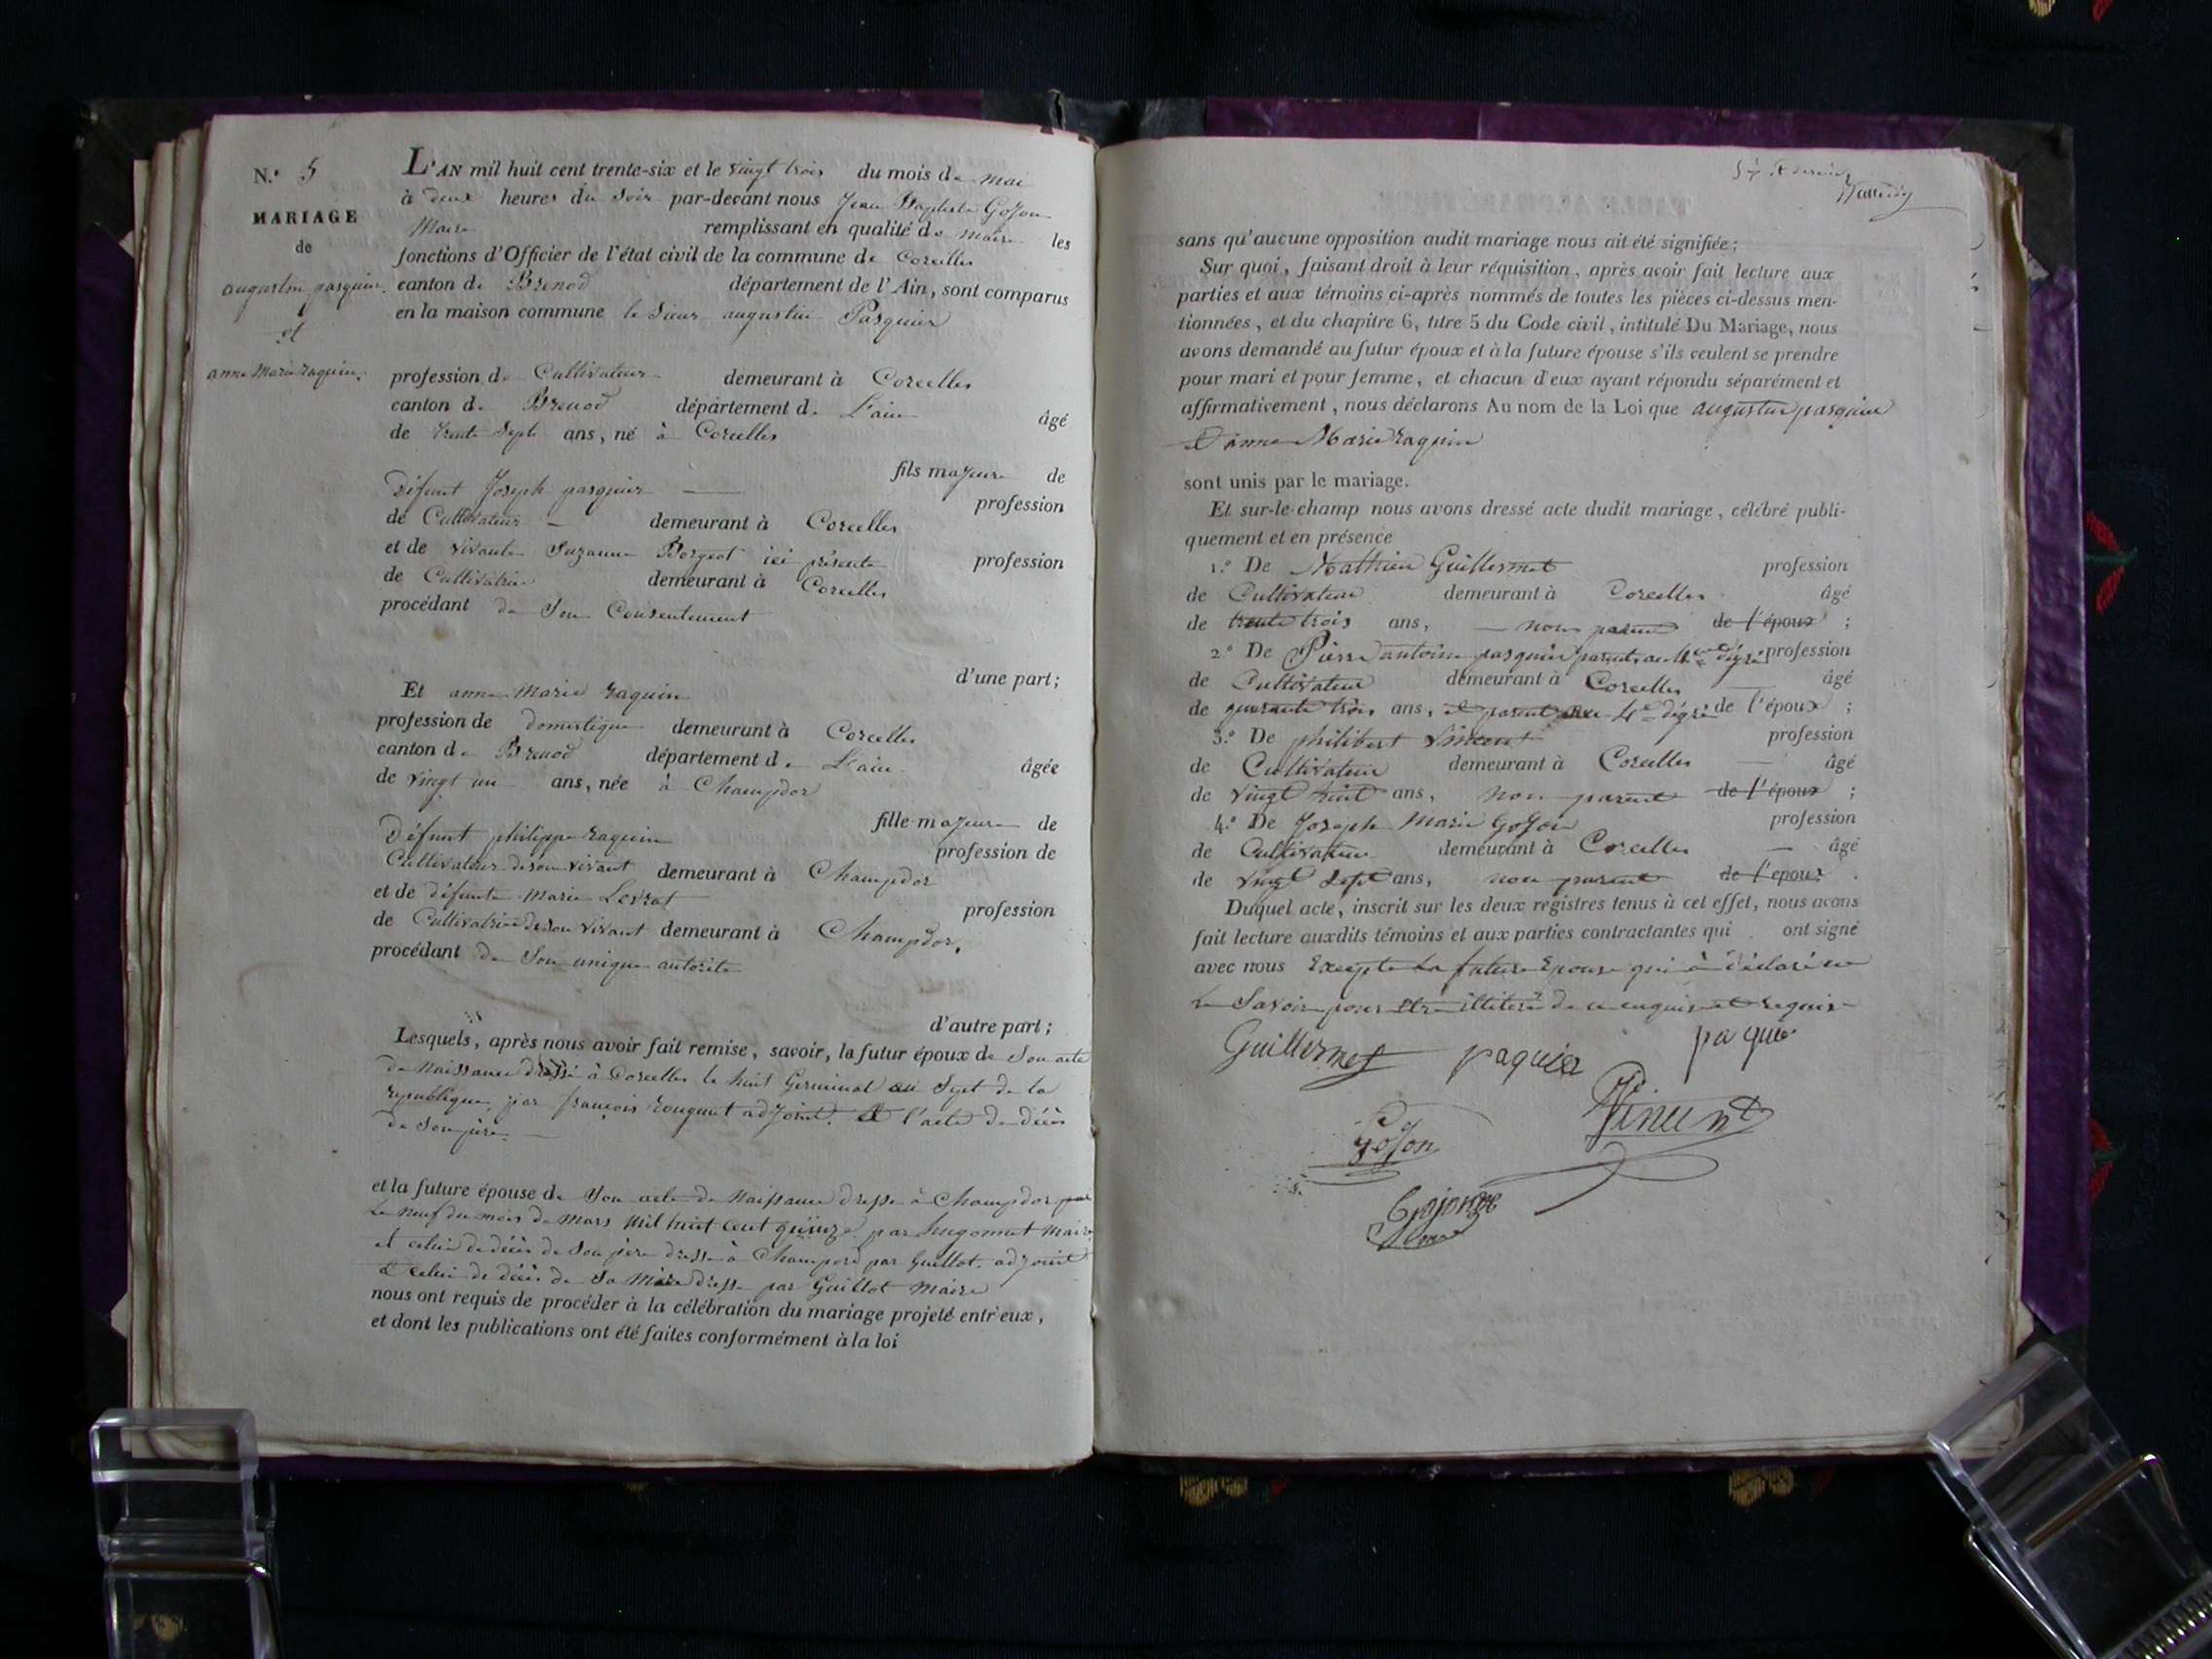 N.º 5
MARIAGE
de
augustin pasquier
et
anne Marie raquin.
L'AN mil huit cent trente-six et le vingt trois du mois de mai
à deux heures du soir par-devant nous Jean Baptiste Gojon
Maire remplissant en qualité de maire les
fonctions d'Officier de l'état civil de la commune de Corcelles
canton de Brenod département de l'Ain, sont comparus
en la maison commune le Sieur augustin Pasquier
profession de Cultivateur demeurant à Corcelles
canton de Brenod département de L'ain âgé
de trente Sept ans, né à Corcelles
fils majeur de
Défunt Joseph pasquier profession
de Cultivateur demeurant à Corcelles
et de vivante Suzanne Borgeot ici présente profession
de Cultivatrice demeurant à Corcelles
procédant de Son Consentement
d'une part;
Et anne Marie raquin
profession de domestique demeurant à Corcelles
canton de Brenod département de L'ain âgée
de vingt un ans, née à Champdor
fille majeure de
Défunt philippe raquin profession de
Cultivateur de son vivant demeurant à Champdor
et de défunte Marie Levrat profession
de Cultivatrice de son vivant demeurant à Champdor.
procédant de Son unique autorité
d'autre part;
Lesquels, après nous avoir fait remise, savoir, la futur époux de Son acte
de Naissance dressé à Corcelles le huit Germinal an Sept de la
republique, par françois rouguet adjoint. Et l'acte de décès
de Son père.
et la future épouse de Son acte de Naissance dressé à Champdor
Le neuf du mois de Mars Mil huit Cent quinze par hugonnet Maire
et celui de décès de Son père dressé à Champdor par Guillot. adjoint
Et celui de décès de Sa Mère dressé par Guillot Maire
nous ont requis de procéder à la célébration du mariage projeté entr'eux,
et dont les publications ont été faites conformément à la loi
sans qu'aucune opposition audit mariage nous ait été signifiée;
Sur quoi, faisant droit à leur réquisition, après avoir fait lecture aux
parties et aux témoins ci-après nommés de toutes les pièces ci-dessus men-
tionnées, et du chapitre 6, titre 5 du Code civil, intitulé Du Mariage, nous
avons demandé au futur époux et à la future épouse s'ils veulent se prendre
pour mari et pour femme, et chacun d'eux ayant répondu séparément et
affirmativement, nous déclarons Au nom de la Loi que augustin pasquier
Et anne Marie raquin
sont unis par le mariage.
Et sur-le-champ nous avons dressé acte dudit mariage, célébré publi-
quement et en présence
1.º De Mathieu Guillermet profession
de Cultivateur demeurant à Corcelles âgé
de trente trois ans, non parent de l'époux;
2.º De Pierre antoine pasquier parent au 4.me degré profession
de Cultivateur demeurant à Corcelles âgé
de quarante trois ans, et parent au 4.e degré de l'époux;
3.º De philibert Vincent profession
de Cultivateur demeurant à Corcelles âgé
de vingt huit ans, non parent de l'époux;
4.º De Joseph Marie Gojon profession
de Cultivateur demeurant à Corcelles âgé
de vingt Sept ans, non parent de l'époux.
Duquel acte, inscrit sur les deux régistres tenus à cet effet, nous avons
fait lecture auxdits témoins et aux parties contractantes qui ont signé
avec nous Excepté La future Epouse qui à déclaré ne
Le Savoir pour Etre illitéré de ce enquis et requis
Guillermet paquier paquie
Vincent
gojon
Gojon